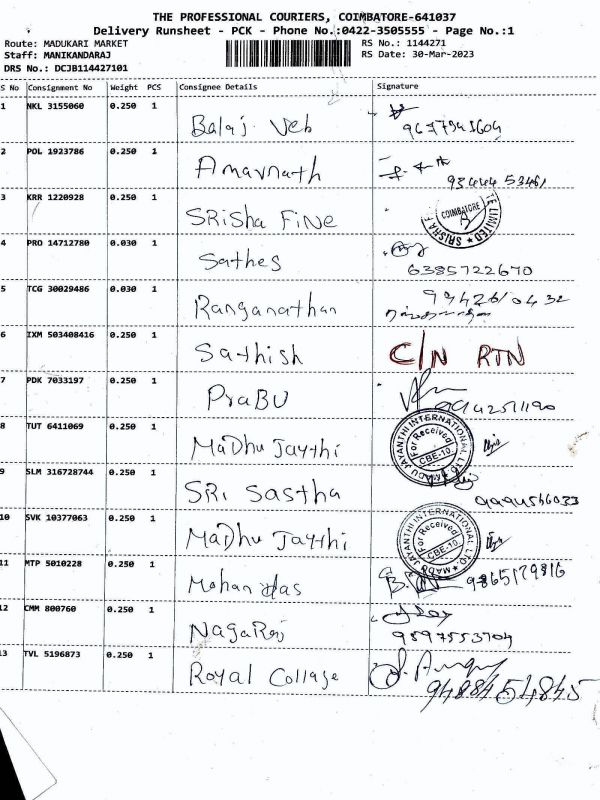 THE PROFESSIONAL COURIERS, COIMBATORE-641037
Delivery Runsheet - PCK - Phone No.:0422-3505555 - Page No.:1
Route: MADUKARI MARKET
RS No.: 1144271
Staff: MANIKANDARAJ
RS Date: 30-Mar-2023
DRS No.: DCJB114427101
S No Consignment No Weight PCS Consignee Details Signature
1 NKL 3155060 0.250 1 Balaj Veb
2 POL 1923786 0.250 1 Amavnath 93444 53461
3 KRR 1220928 0.250 1 SRisha FiNe COIMBATORE
4 PRO 14712780 0.030 1 Sathes 6385722670
5 TCG 30029486 0.030 1 Ranganathan
6 IXM 503408416 0.250 1 Sathish C/N RTN
7 PDK 7033197 0.250 1 PraBU
8 TUT 6411069 0.250 1 MaDhu Jaythi MADU JAYANTHI INTERNATIONAL LTD. For Received CBE-10
9 SLM 316728744 0.250 1 SRi Sastha
10 SVK 10377063 0.250 1 MaDhu Jaythi MADU JAYANTHI INTERNATIONAL LTD. For Received CBE-10
11 MTP 5010228 0.250 1 Mohan das 9865179816
12 CMM 800760 0.250 1 NagaRaj 9597553704
13 TVL 5196873 0.250 1 Royal Collage 9488454845